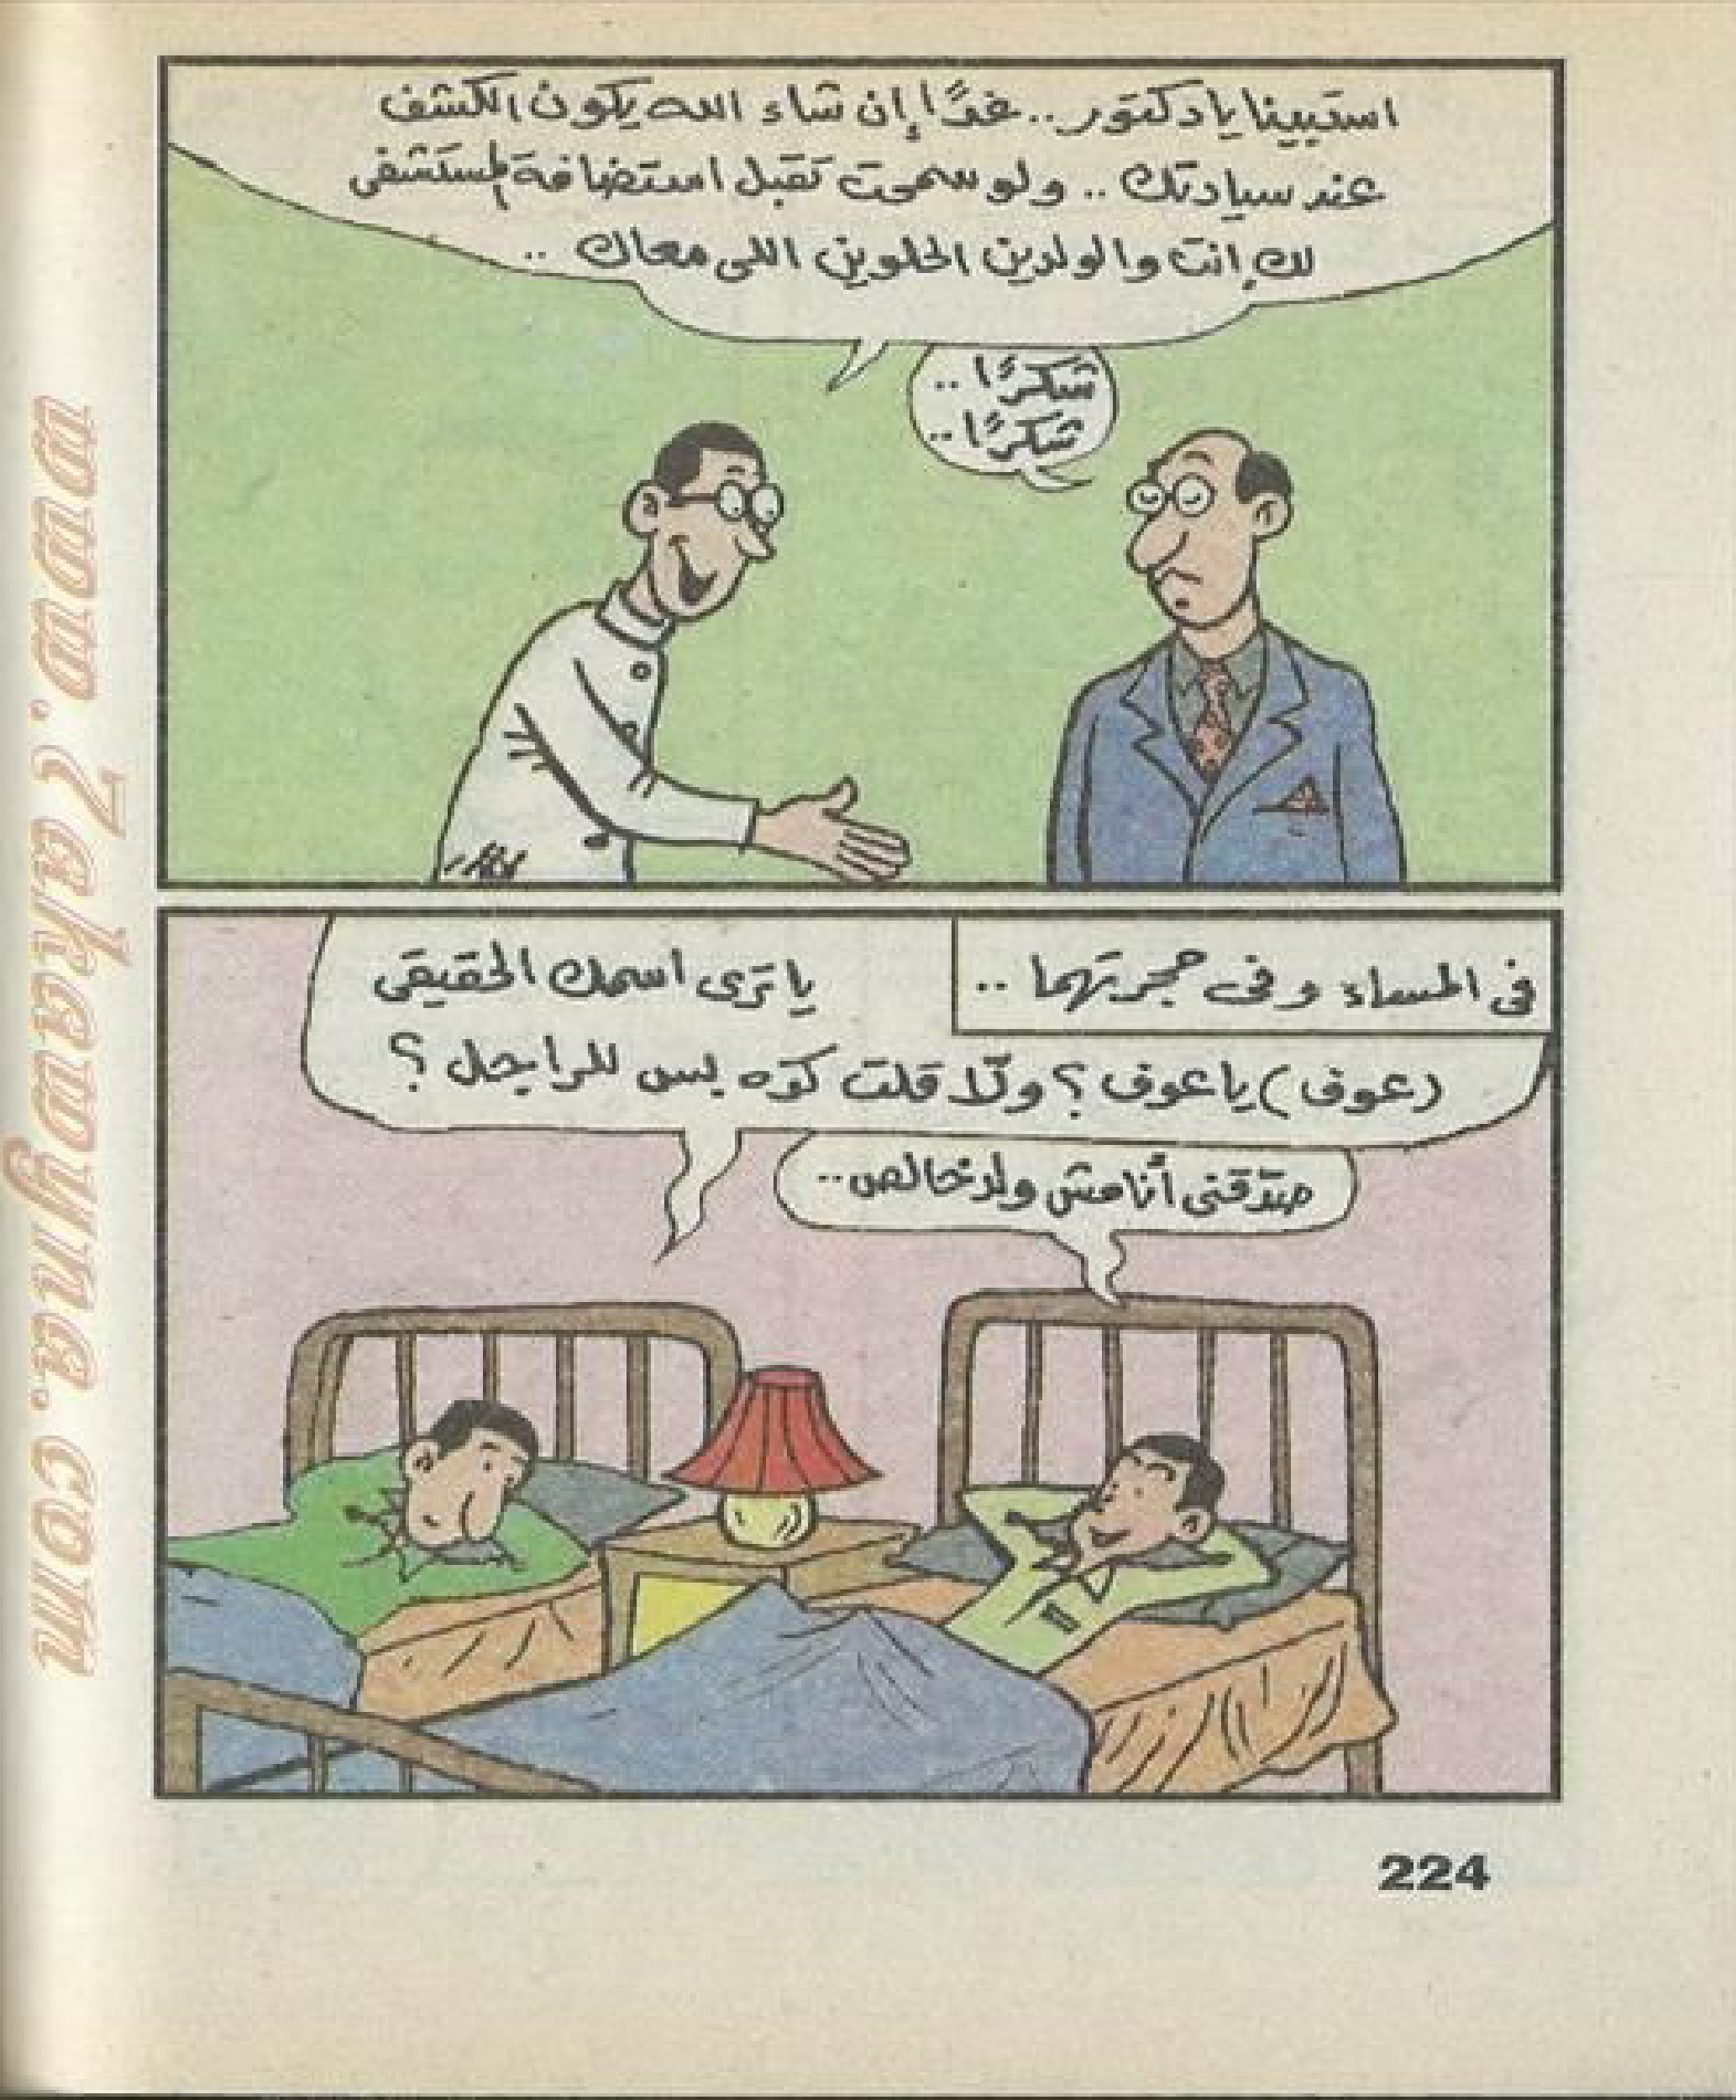 استبينا يا دكتور.. غدًا إن شاء الله يكون الكشف
عند سيادتك .. ولو سمحت تقبل استضافة المستشفى
لك إنت والولدين الحلوين اللى معاك ..
شكرًا ..
شكرًا ..
فى المساء وفى حجرتهما ..
يا ترى اسمك الحقيقى
(عوف) يا عوف؟ ولّا قلت كده بس للراجل؟
صدّقنى أنا مش ولد خالص..
224
www.7akawyna.com